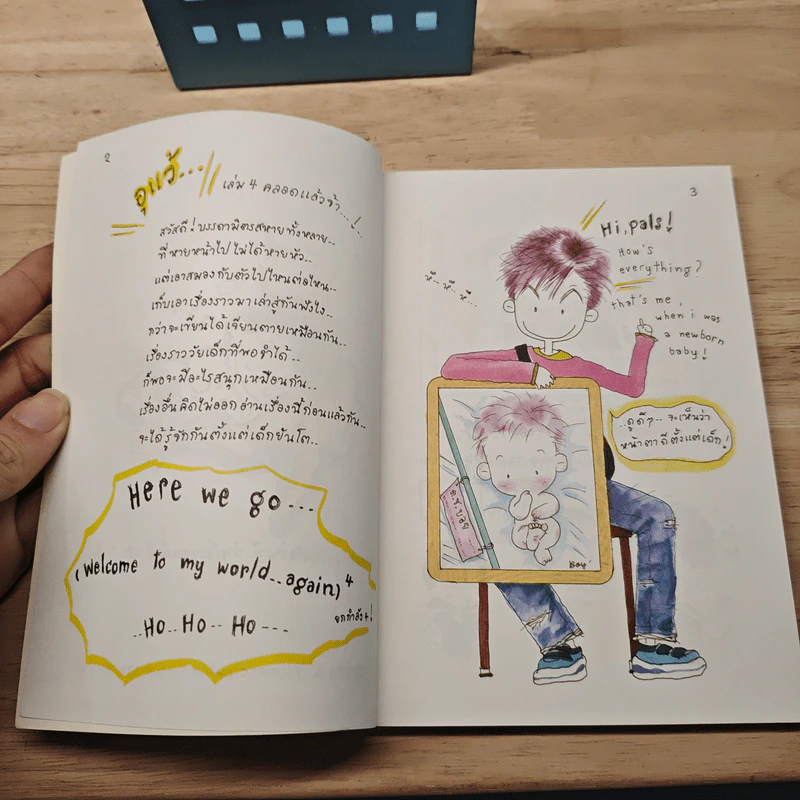 2
อุแว้...
เล่ม 4 คลอดแล้วจ้า...!..
สวัสดี! บรรดามิตรสหายทั้งหลาย..
ที่หายหน้าไป ไม่ได้หายหัว..
แต่เอาสมองกับตัวไปไหนต่อไหน..
เก็บเอาเรื่องราวมาเล่าสู่กันฟังไง..
กว่าจะเขียนได้เจียนตายเหมือนกัน..
เรื่องราววัยเด็กที่พอจำได้..
ก็พอจะมีอะไรสนุกเหมือนกัน..
เรื่องอื่นคิดไม่ออกอ่านเรื่องนี้ก่อนแล้วกัน..
จะได้รู้จักกันตั้งแต่เด็กยันโต..
Here we go...
(welcome to my world..again)4
ยกกำลัง 4!
..Ho..Ho..Ho---
3
Hi, pals!
How's
everything?
that's me,
when i was
a newborn
baby!
หึ...หึ...หึ...
..ดูดีๆ.. จะเห็นว่า
หน้าตาดีตั้งแต่เด็ก!
ด.ช.บอย
Boy'